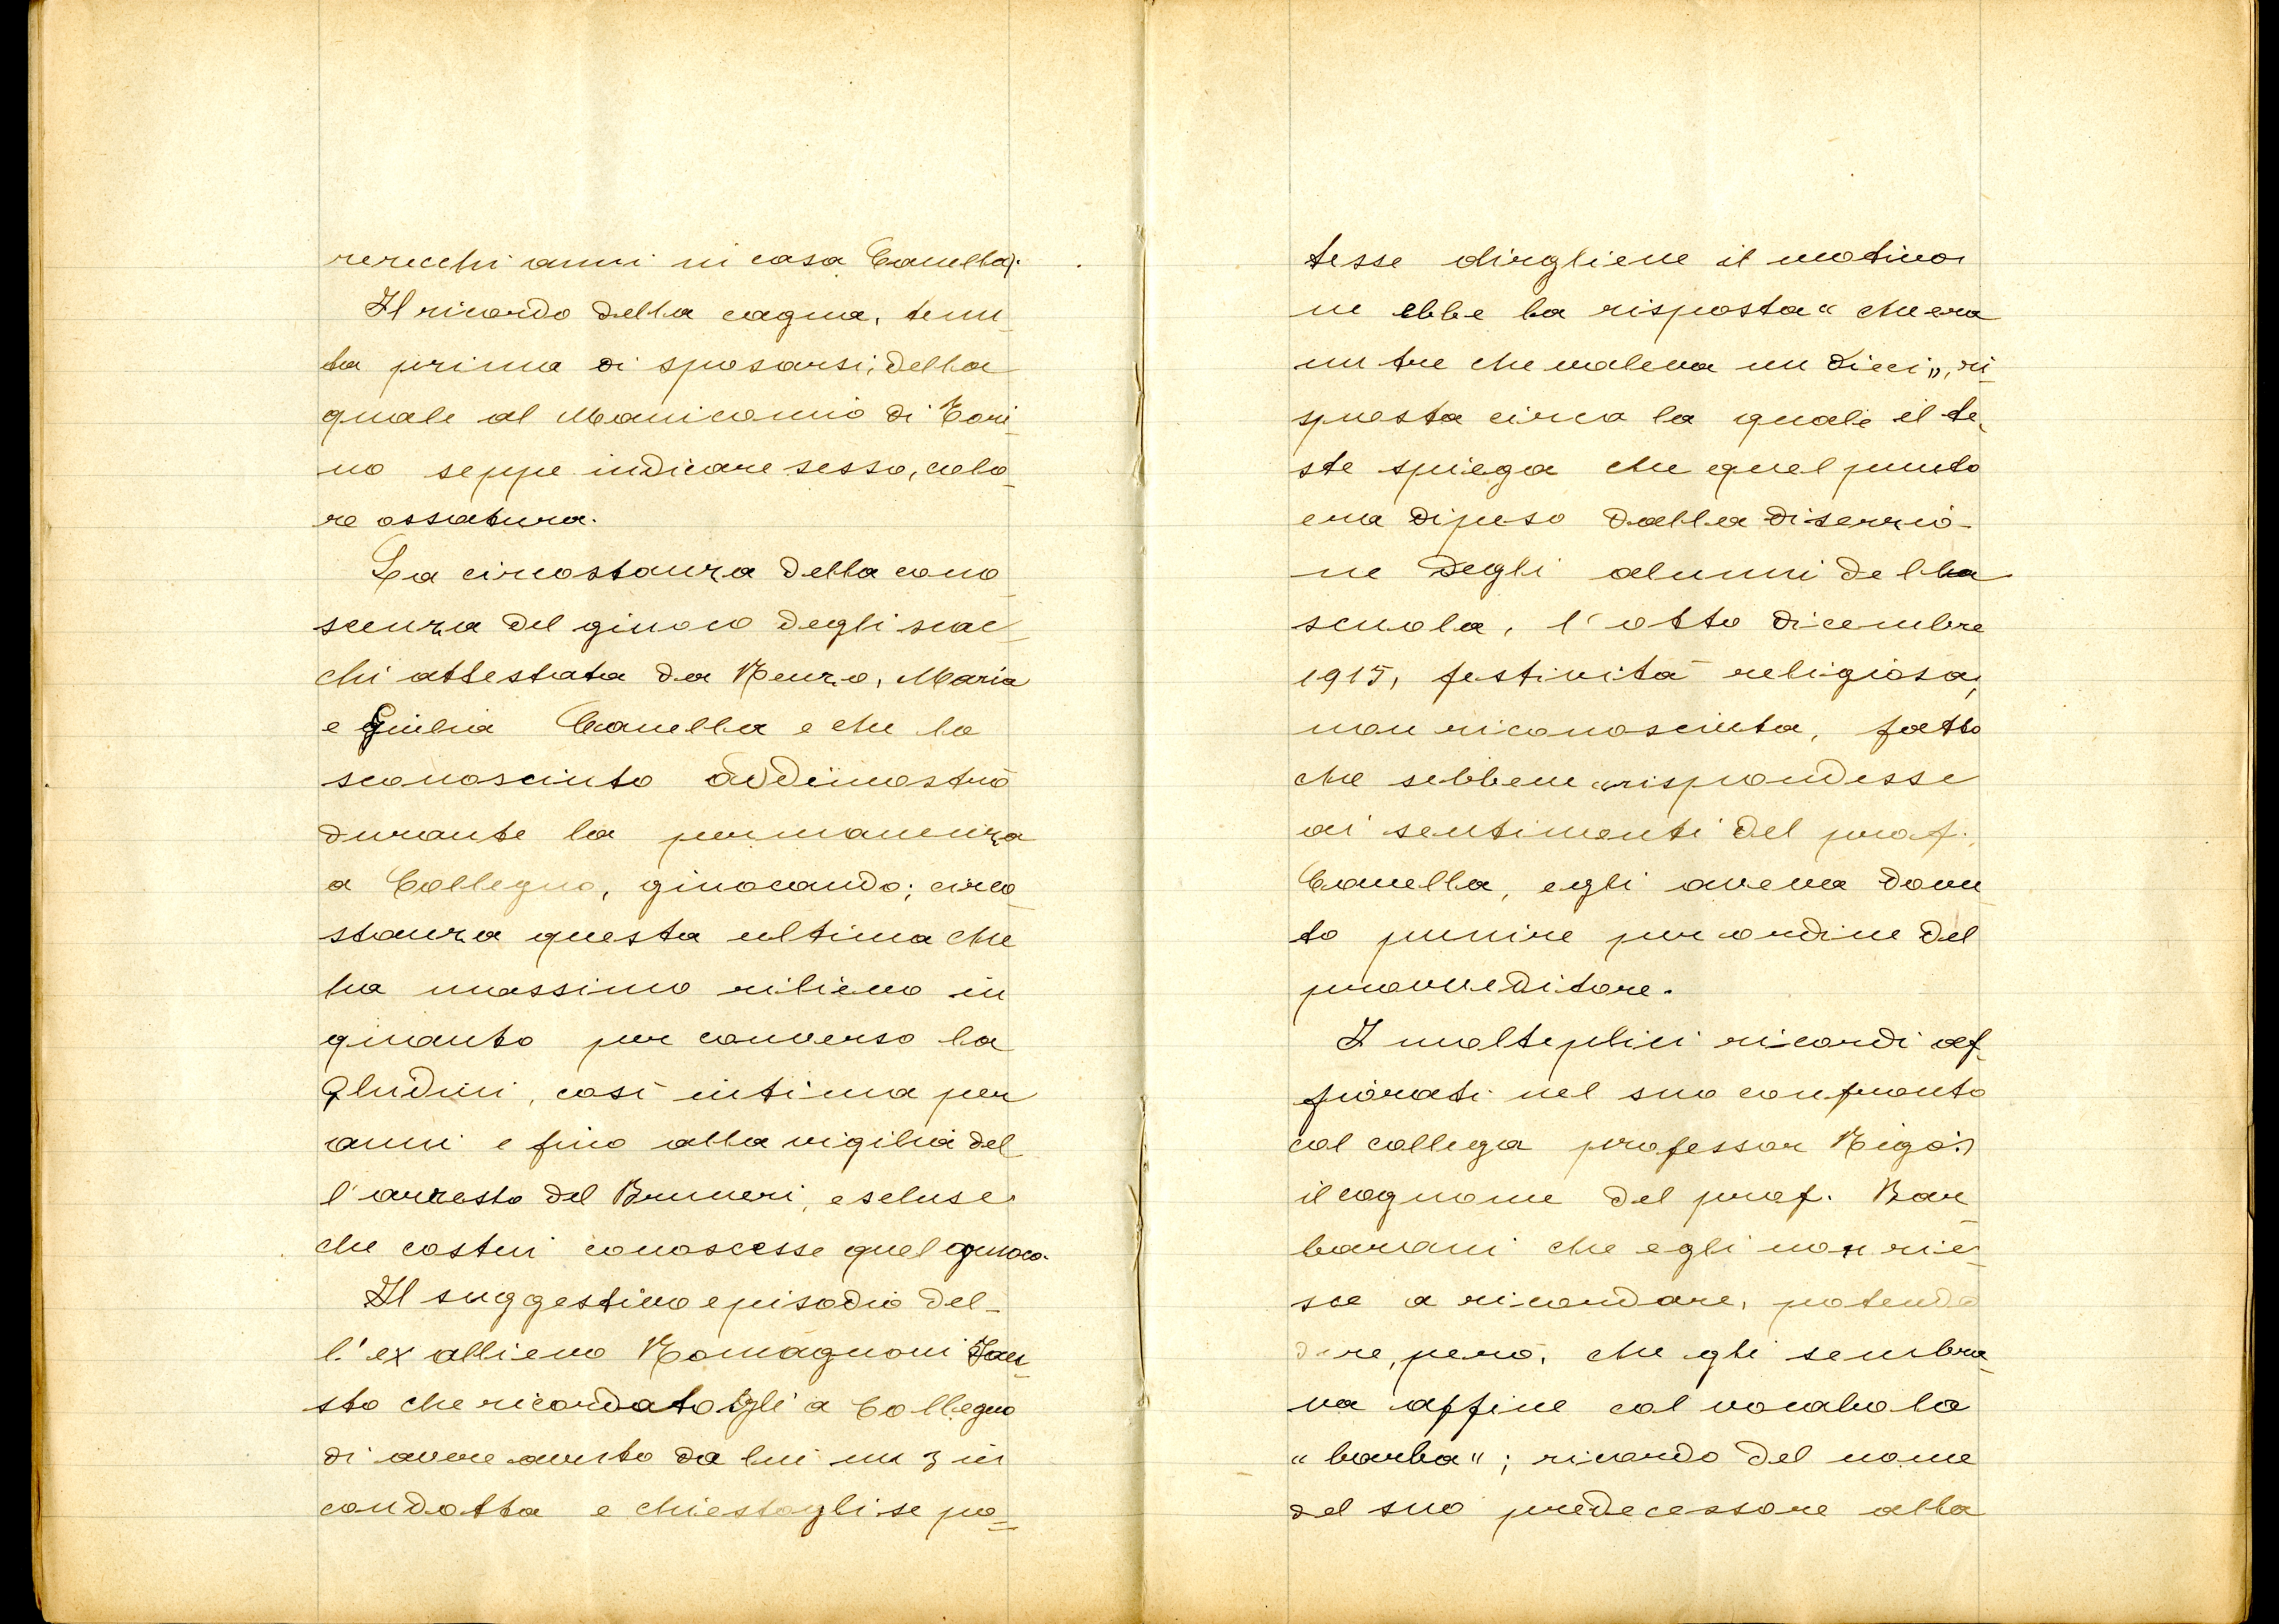 recchi anni in casa Canella).
Il ricordo della cagna, tenu_
ta prima di sposarsi, della
quale al Manicomio di Tori_
no seppe indicare sesso, colo_
re ossatura.
La circostanza della cono_
scenza del giuoco degli scac_
chi attestata da Renzo, Maria
e Giulia Canella e che lo
sconosciuto addimostrò
durante la permanenza
a Collegno, giuocando; circo_
stanza questa ultima che
ha massimo rilievo in
quanto per converso la
Ghidini, così intima per
anni e fino alla vigilia del
l'arresto del Bruneri, escluse
che costui conoscesse quel giuoco.
Il suggestivo episodio del_
l'ex allievo Romagnoni Fau_
sto che ricordatogli a Collegno
di avere avuto da lui un 3 in
condotta e chiestogli se po=
tesse dirgliene il motivo
ne ebbe la risposta "che era
un tre che valeva un dieci", ri_
sposta circa la quale il te_
ste spiega che quel punto
era dipeso dalla diserzio_
ne degli alunni della
scuola, l'otto dicembre
1915, festività religiosa,
non riconosciuta, fatto
che sebbene corrispondesse
ai sentimenti del prof.
Canella, egli aveva dovu_
to punire per ordine del
provveditore.
I molteplici ricordi af_
fiorati nel suo confronto
col collega professor Rigo:
il cognome del prof. Bar_
barani che egli non rie_
sce a ricordare, potendo
dire, però, che gli sembra_
va affine col vocabolo
"barba"; ricordo del nome
del suo predecessore alla